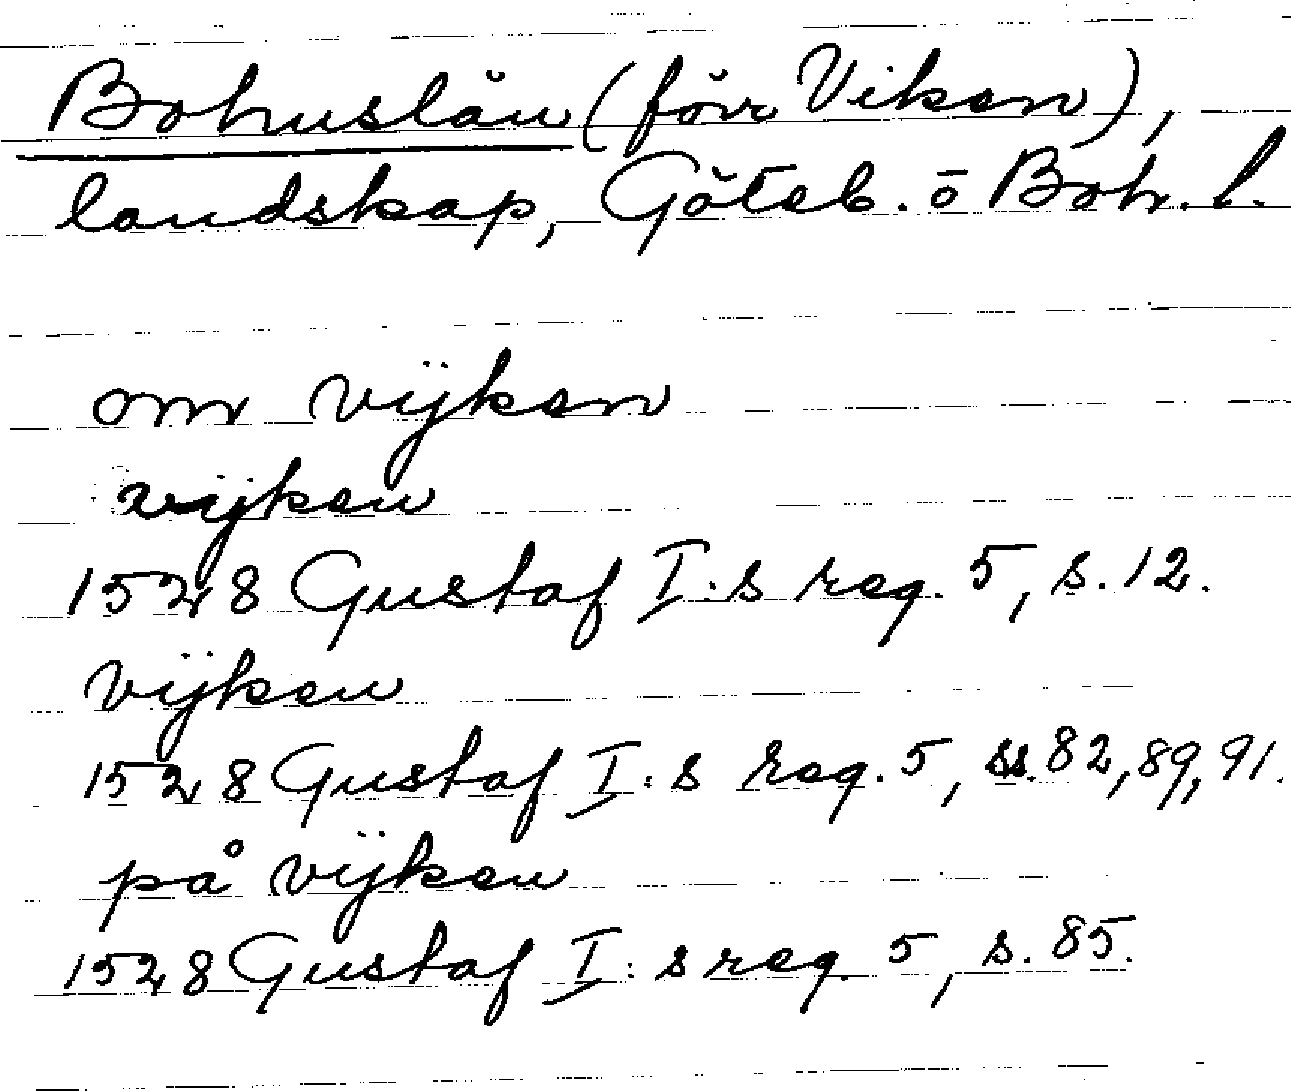 Bohuslän (förr Viken),
landskap, Göteb. o Boh. l.
om vijken
vijken
1528 Gustaf I:s reg. 5, s. 12.
Vijken
1528 Gustaf I:s reg. 5, ss. 82, 89, 91.
på vijken
1528 Gustaf I:s reg. 5, s. 85.